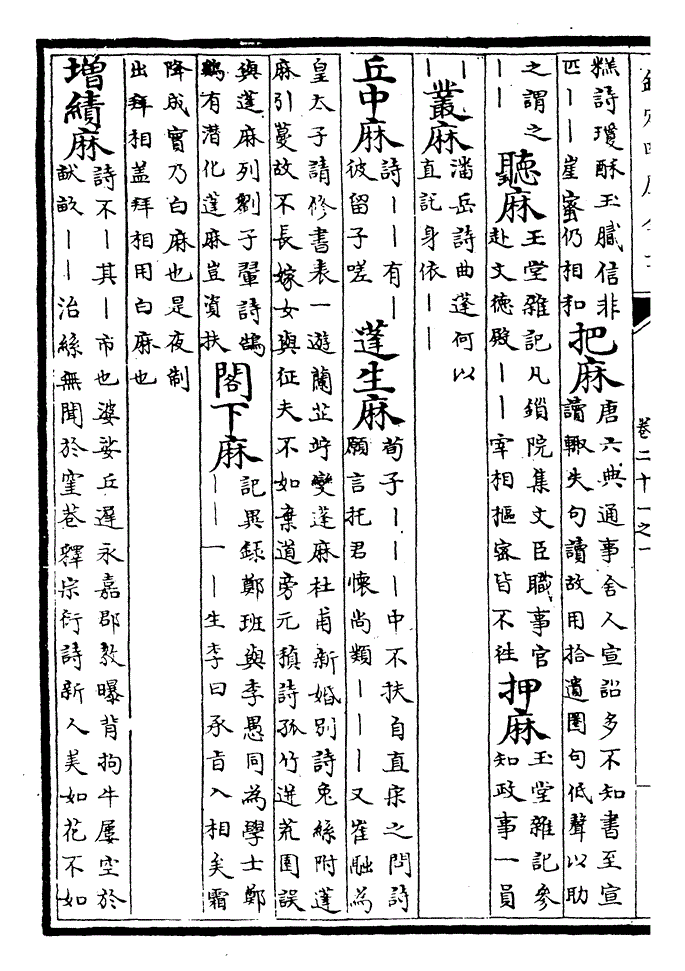 糕詩瓊酥玉膩信非
匹——崖蜜仍相和
把麻
唐六典通事舍人宣詔多不知書至宣
讀輒失句讀故用拾遺團句低聲以助
之謂之
——
聽麻
玉堂雜記凡鎖院集文臣職事官
赴文德殿——宰相樞密皆不往
押麻
玉堂雜記參
知政事一員
—
—
叢麻
潘岳詩曲蓬何以
直託身依——
丘中麻
詩——有—
彼留子嗟
蓬生麻
荀子———中不扶自直宋之問詩
願言托君懷尚類———又崔融為
皇太子請修書表一遊蘭芷時變蓬麻杜甫新婚別詩兔絲附蓬
麻引蔓故不長嫁女與征夫不如棄道旁元稹詩孤竹迸荒園誤
與蓬麻列劉子翬詩鵠
鷄有潜化蓬麻豈資扶
閣下麻
記異録鄭班與李愚同為學士鄭
——一—生李曰承旨入相矣霜
降成實乃白麻也是夜制
出拜相盖拜相用白麻也
增績麻
詩不—其—市也婆娑丘遲永嘉郡教曝背拘牛屢空於
畎畝——治絲無聞於窐巷釋宗衍詩新人美如花不如
卷二十一之一